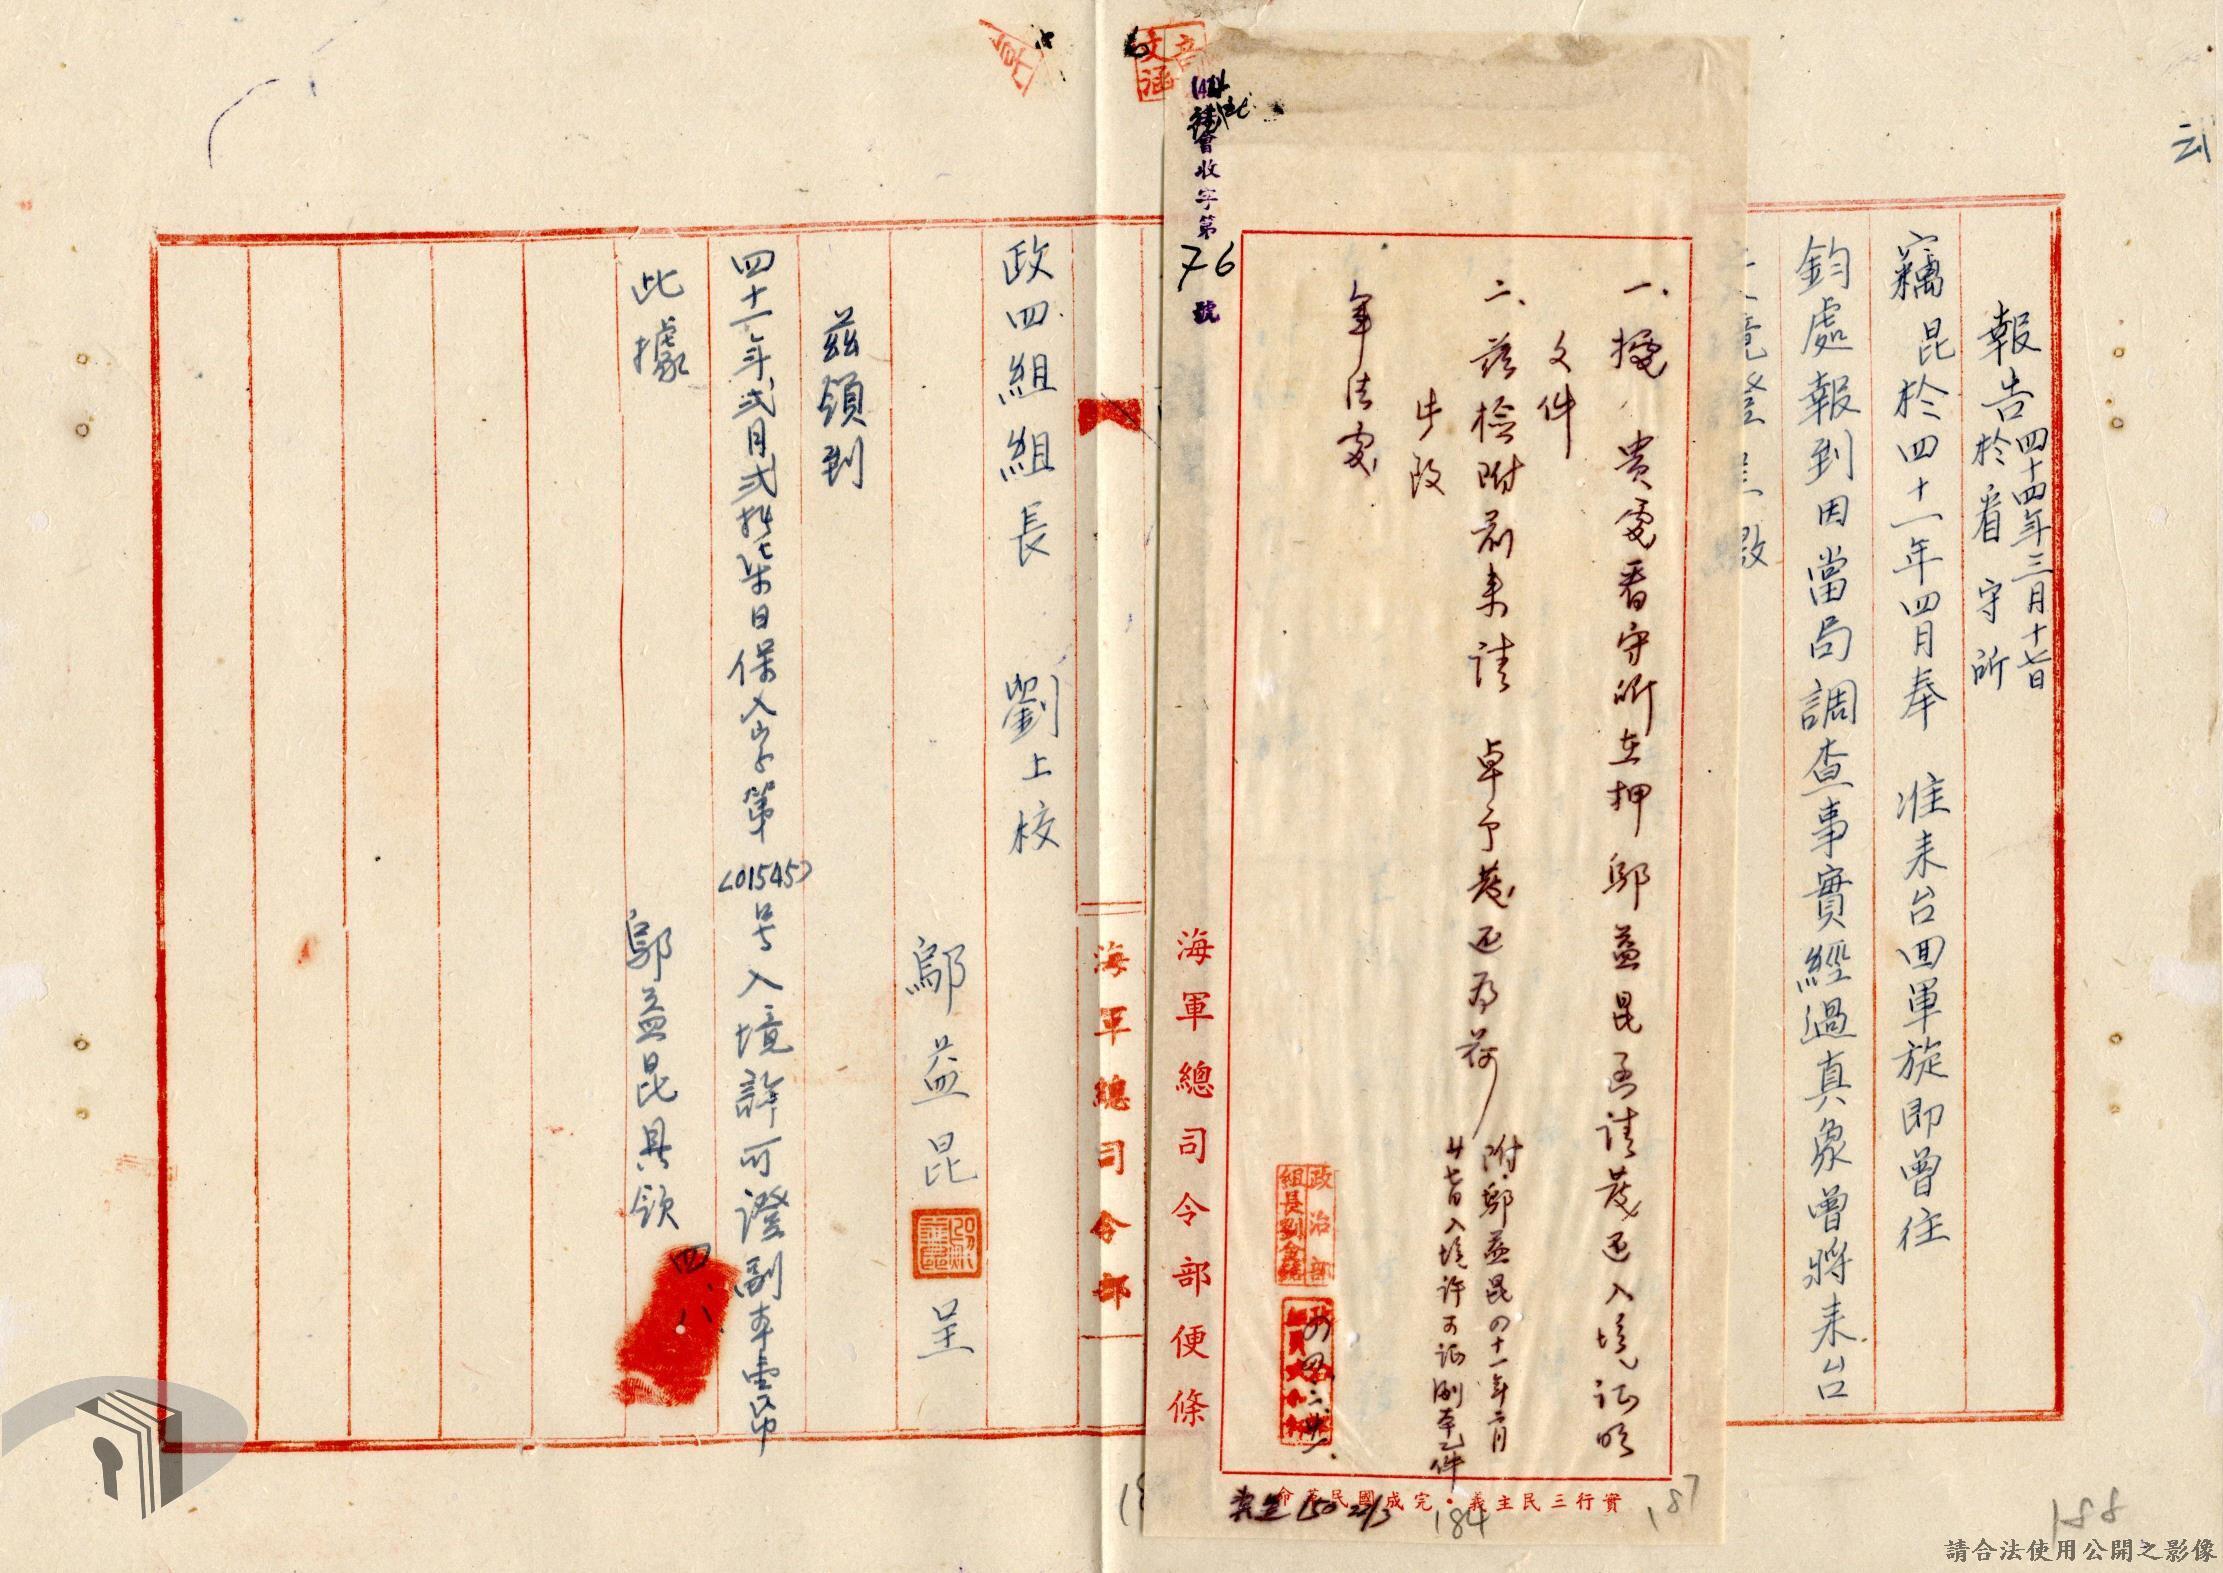 報告 四十四年三月十七日
於看守所
竊昆於四十一年四月奉 准来台回軍旋即曾往
鈞處報到因當局調查事實經過真象曾將来台
一、據 貴處看守所在押鄔益昆函請發还入境证明
文件
二、茲檢附前来請 卓予發还為荷
附鄔益昆四十一年二月
廿七日入境许可证副本乙件
此致
軍法處
政治部
組長劉
實行三民主義·完成國民革命
海軍總司令部便條
會收字第
76
號
文
海軍總司令部
政四組組長 劉上校
鄔益昆 呈
茲領到
四十一年弍月弍拾柒日保入字第
(01545)
号入境許可證副本壹帋
此據
鄔益昆具領 四、八、
184
187
188
請合法使用公開之影像